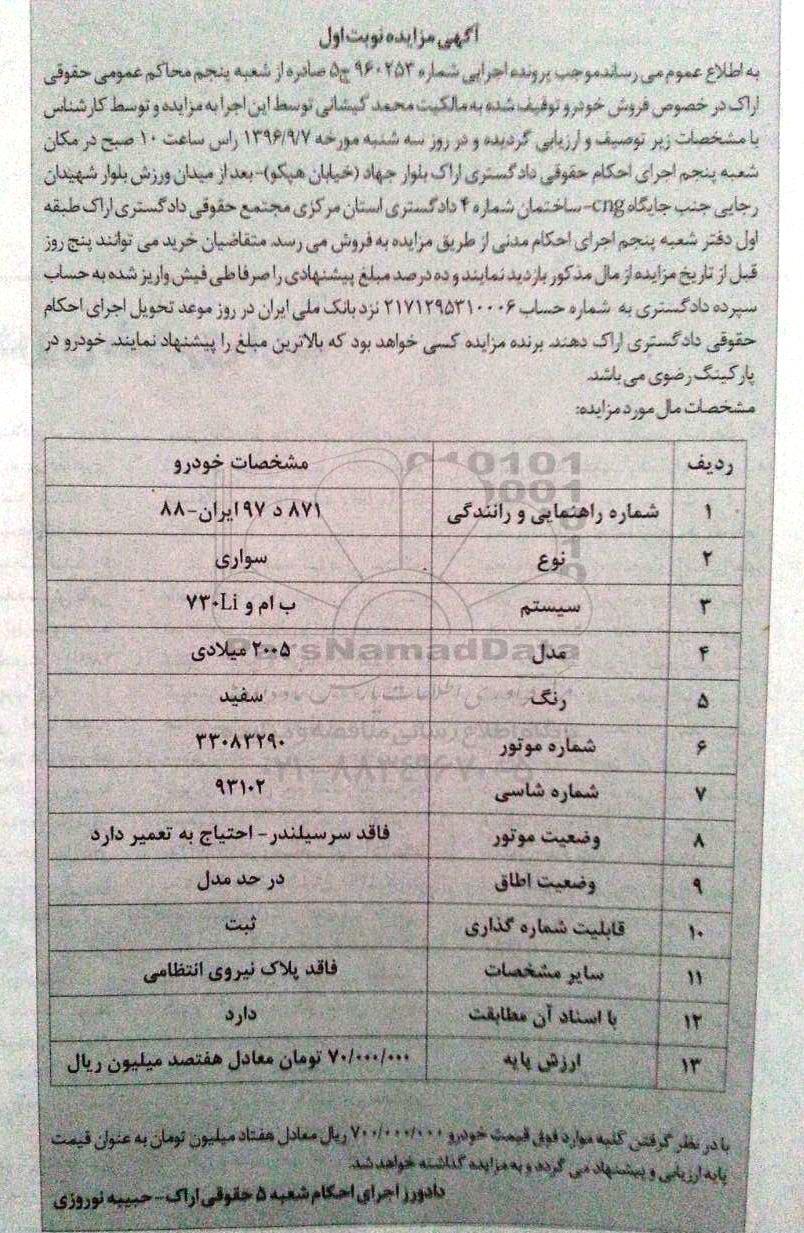 آگهی مزایده نوبت اول
به اطلاع عموم می رساندموجب پرونده اجرایی شماره ۹۶۰۲۵۳ ج۵ صادره از شعبه پنجم محاکم عمومی حقوقی
اراک در خصوص فروش خودرو توقیف شده به مالکیت محمد گیشانی توسط این اجرا به مزایده و توسط کارشناس
با مشخصات زیر توصیف و ارزیابی گردیده و در روز سه شنبه مورخه ۱۳۹۶/۹/۷ راس ساعت ۱۰ صبح در مکان
شعبه پنجم اجرای احکام حقوقی دادگستری اراک بلوار جهاد (خیابان هپکو)-بعد از میدان ورزش بلوار شهیدان
رجایی جنب جایگاه cng-ساختمان شماره ۴ دادگستری استان مرکزی مجتمع حقوقی دادگستری اراک طبقه
اول دفتر شعبه پنجم اجرای احکام مدنی از طریق مزایده به فروش می رسد. متقاضیان خرید می توانند پنج روز
قبل از تاریخ مزایده از مال مذکور بازدید نمایند و ده درصد مبلغ پیشنهادی را صرفا طی فیش واریز شده به حساب
سپرده دادگستری به شماره حساب ۲۱۷۱۲۹۵۳۱۰۰۰۶ نزد بانک ملی ایران در روز موعد تحویل اجرای احکام
حقوقی دادگستری اراک دهند. برنده مزایده کسی خواهد بود که بالاترین مبلغ را پیشنهاد نمایند. خودرو در
پارکینگ رضوی می باشد.
مشخصات مال مورد مزایده:
ردیف مشخصات خودرو
۱ شماره راهنمایی و رانندگی ۸۷۱ د ۹۷ ایران-۸۸
۲ نوع سواری
۳ سیستم ب ام و ۷۳۰Li
۴ مدل ۲۰۰۵ میلادی
۵ رنگ سفید
۶ شماره موتور ۳۳۰۸۳۲۹۰
۷ شماره شاسی ۹۳۱۰۲
۸ وضعیت موتور فاقد سرسیلندر- احتیاج به تعمیر دارد
۹ وضعیت اطاق در حد مدل
۱۰ قابلیت شماره گذاری ثبت
۱۱ سایر مشخصات فاقد پلاک نیروی انتظامی
۱۲ با اسناد آن مطابقت دارد
۱۳ ارزش پایه ۷۰/۰۰۰/۰۰۰ تومان معادل هفتصد میلیون ریال
با در نظر گرفتن کلیه موارد فوق قیمت خودرو ۷۰۰/۰۰۰/۰۰۰ ریال معادل هفتاد میلیون تومان به عنوان قیمت
پایه ارزیابی و پیشنهاد می گردد و به مزایده گذاشته خواهد شد.
دادورز اجرای احکام شعبه ۵ حقوقی اراک-حبیبه نوروزی
ParsNamadData